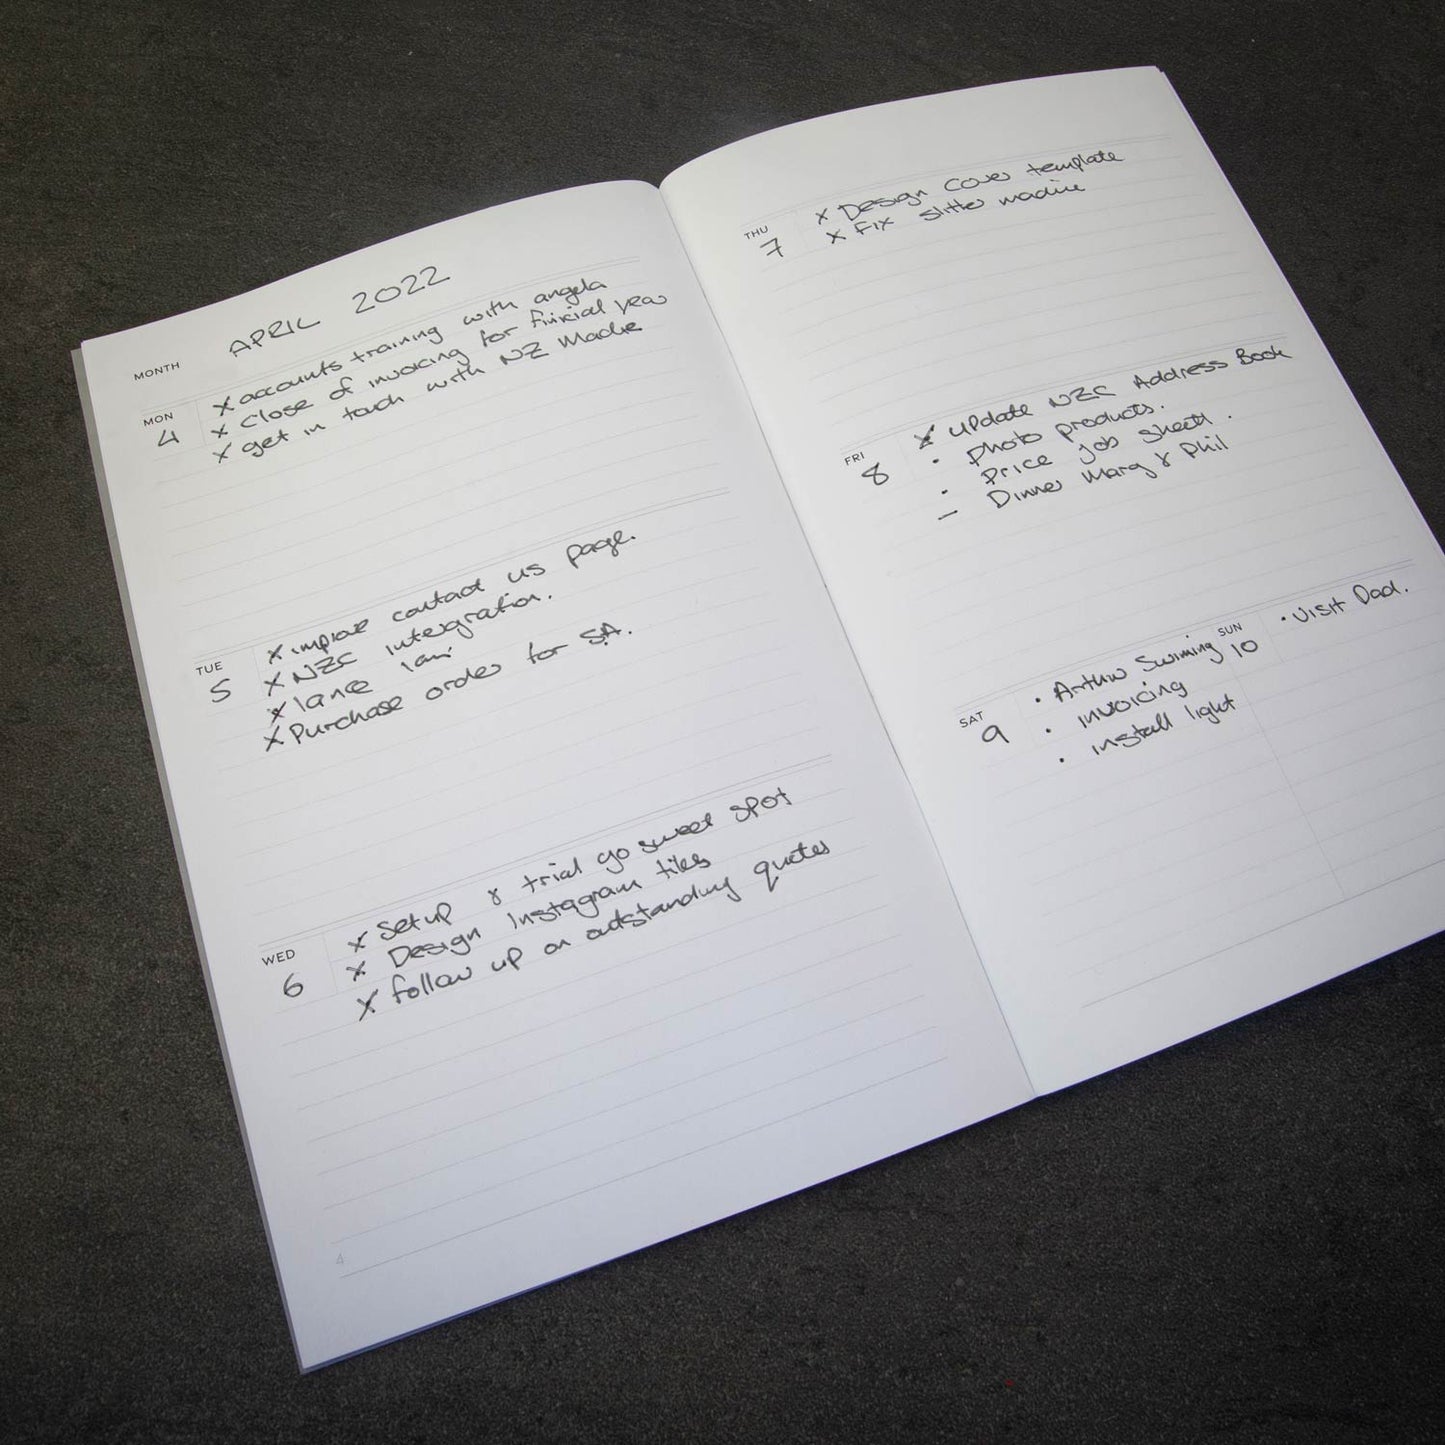 MONTH APRIL 2022
MON
4
x accounts training with angela
x close of invoicing for finicial year
x get in touch with NZ Mache
TUE
5
x improve contact us page.
x NZC intergration.
x lance
x Purchase order for SA.
WED
6
x setup & trial go sweet spot
x Design Instagram tiles
x follow up on outstanding quotes
4
THU
7
x Design Cover template
x Fix slitter machine
FRI
8
x update NZC Address Book
• photo products.
• Price job sheet.
– Dinner Marg & Phil
SAT
9
• Arthur Swiming
• invoicing
• install light
SUN
10
• Visit Dad.